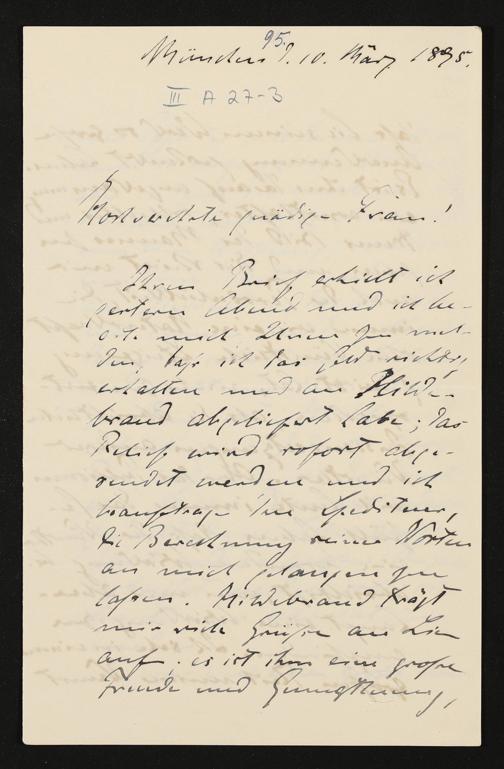 95.
München d. 10. März 1895.
III A 27-3
Hochverehrte gnädige Frau!
Ihren Brief erhielt ich
gestern Abend und ich be-
eile mich Ihnen zu mel-
den, daß ich das Geld richtig
erhalten und an Hilde-
brand abgeliefert habe; das
Relief wird sofort abge-
sendet werden und ich
beauftrage den Spediteur,
die Berechnung seiner Kosten
an mich gelangen zu
lassen. Hildebrand trägt
mir viele Grüße an Sie
auf; es ist ihm eine große
Freude und Genugthuung,